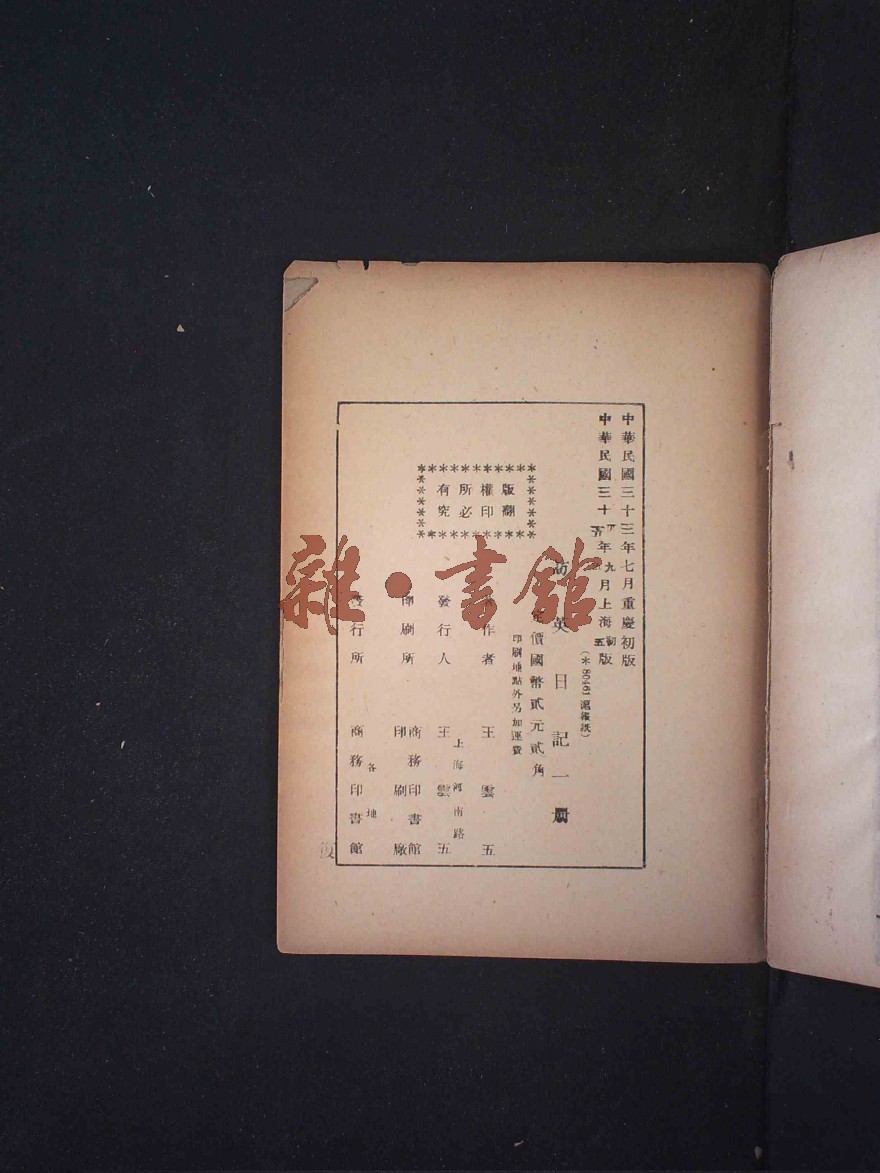 中華民國三十三年七月重慶初版
中華民國三十五年九月上海初版
五版
(＊80461滬報紙)
訪英日記一冊
定價國幣貳元貳角
印刷地點外另加運費
版權所有
翻印必究
作者 王雲五
上海河南路
發行人 王雲五
印刷所 商務印書館
印刷廠
發行所 商務印書館
各地
雜·書館